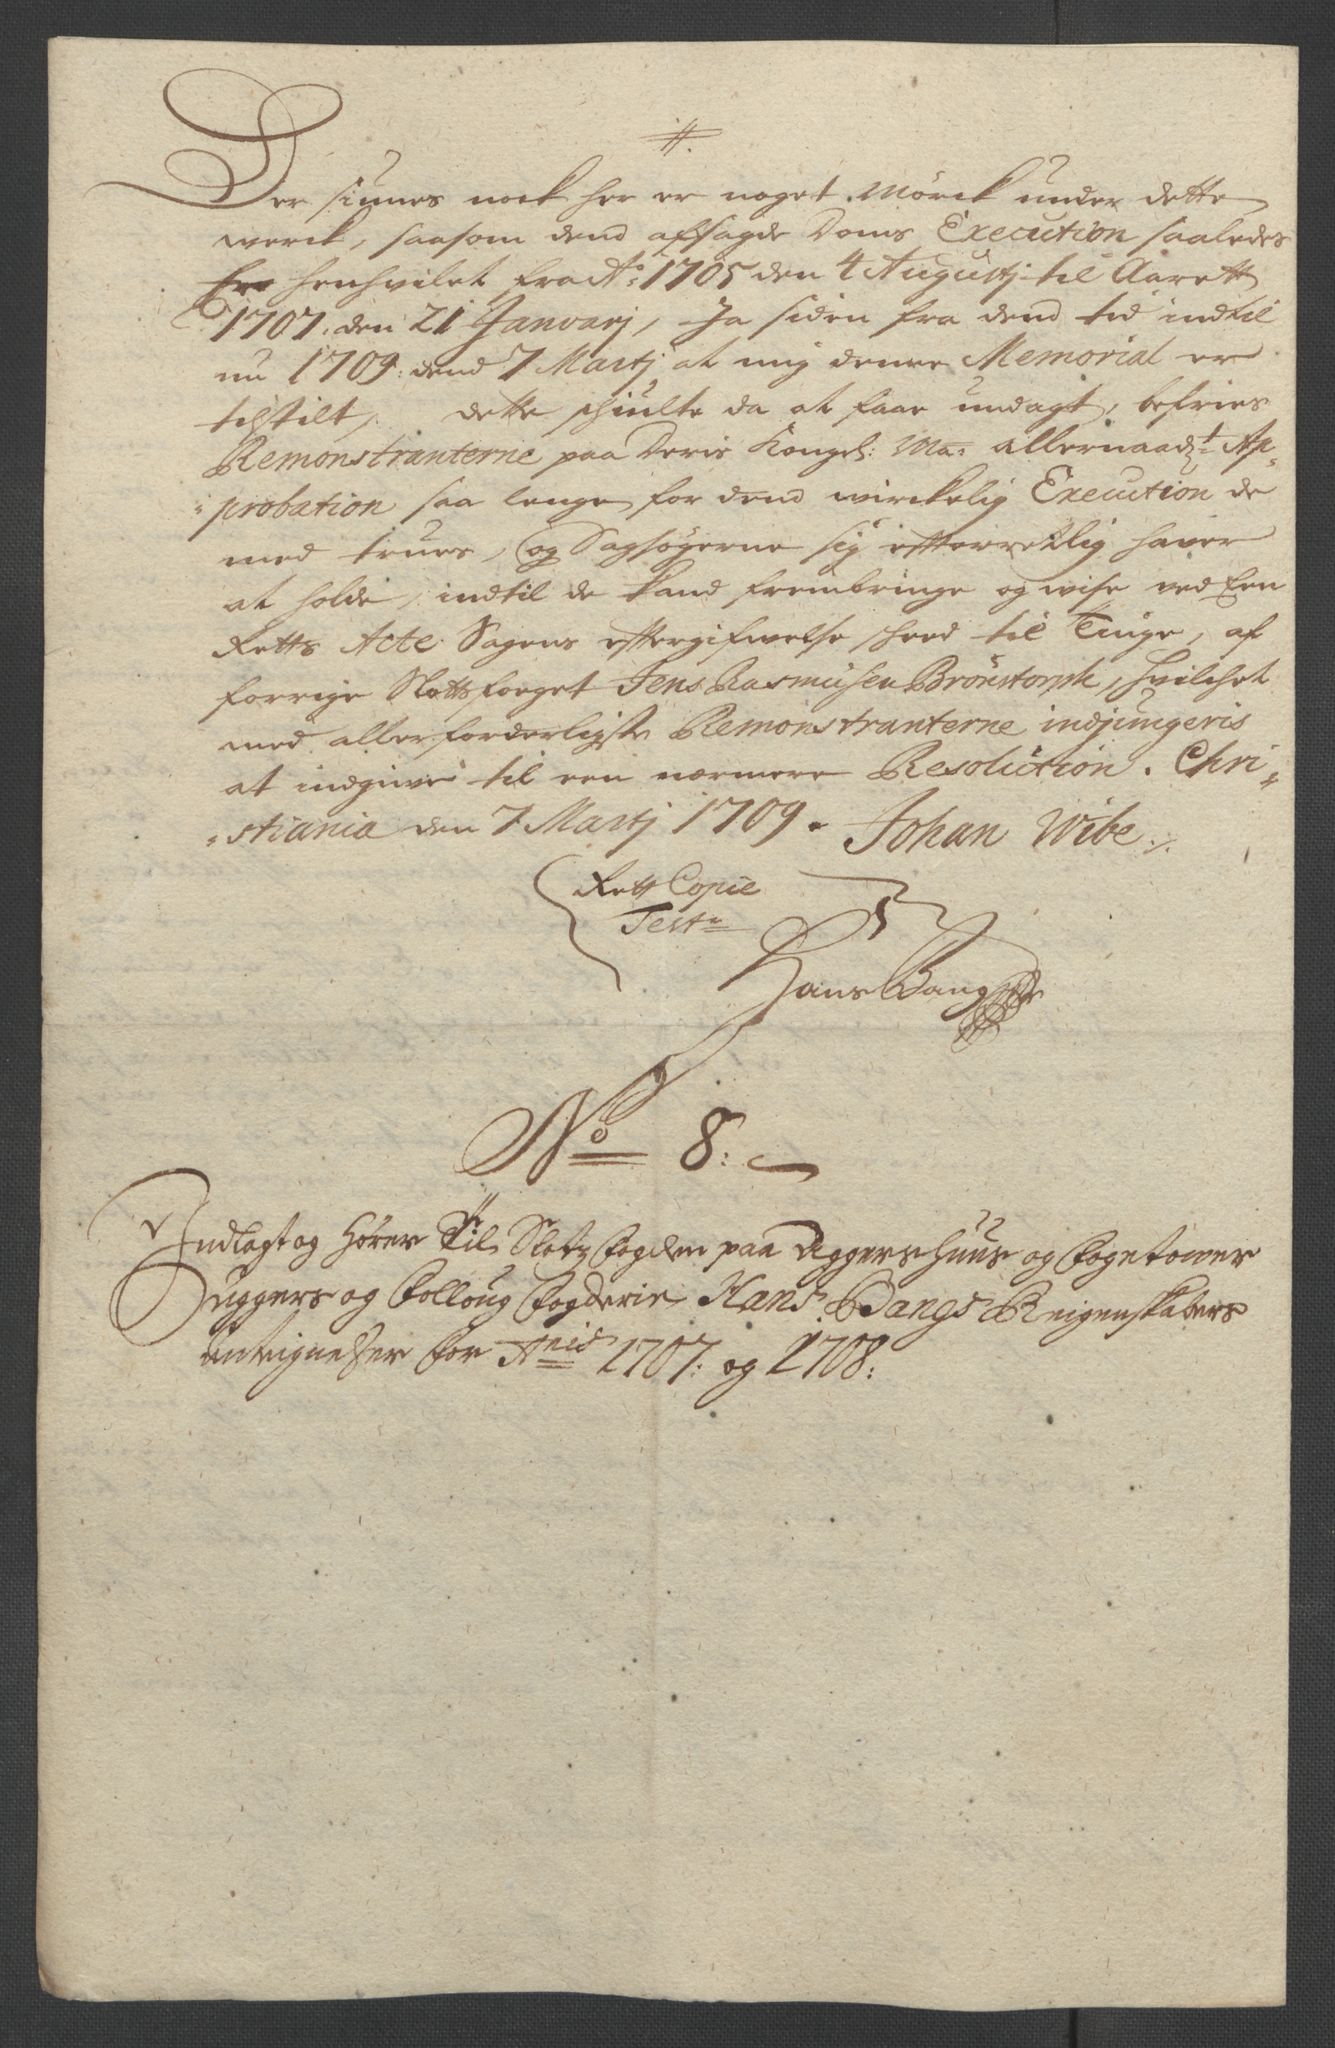 //.
Der siunes nock her er noget Mörck under dette
werck, saasom dend afsagde Doms Execution saaledes
Er henhvilet fra Ao: 1705 den 4 Augustj til Aarett
1707. den 21 Januarj, Ja siden fra dend tid indtil
nu 1709: dend 7 Martj at mig denne Memorial er
tilstilt, dette schiulte da at faae undagt, befries
Remonstranterne paa Deris Kongel: Ma: allernaadgt Ap=
=probation saa lenge for dend wirckelig Execution de
med trues, og Sagsögerne sig efterrettlig haver
at holde, indtil de kand frembringe og wise ved Een
Retts Acte Sagens eftergifwelse, skeed til Tinge, af
forrige Slottsfoeget Jens Rasmusen Brönstorph, hvilchet
med allerforderligste Remonstranterne indjungeris
at indgive til een nærmere Resolution. Chri=
=stiania den 7 Martj 1709. Johan Wibe ./.
Rett Copie
Test:
Hans Bang
No 8:
Indlagt og Hörer Til Slotz Fogden paa Aggershuus og Foget ower
Aggers og Folloug Fogderie, Hans Bangs Reigenskabers
Antegnelser for Anis 1707: og 1708: